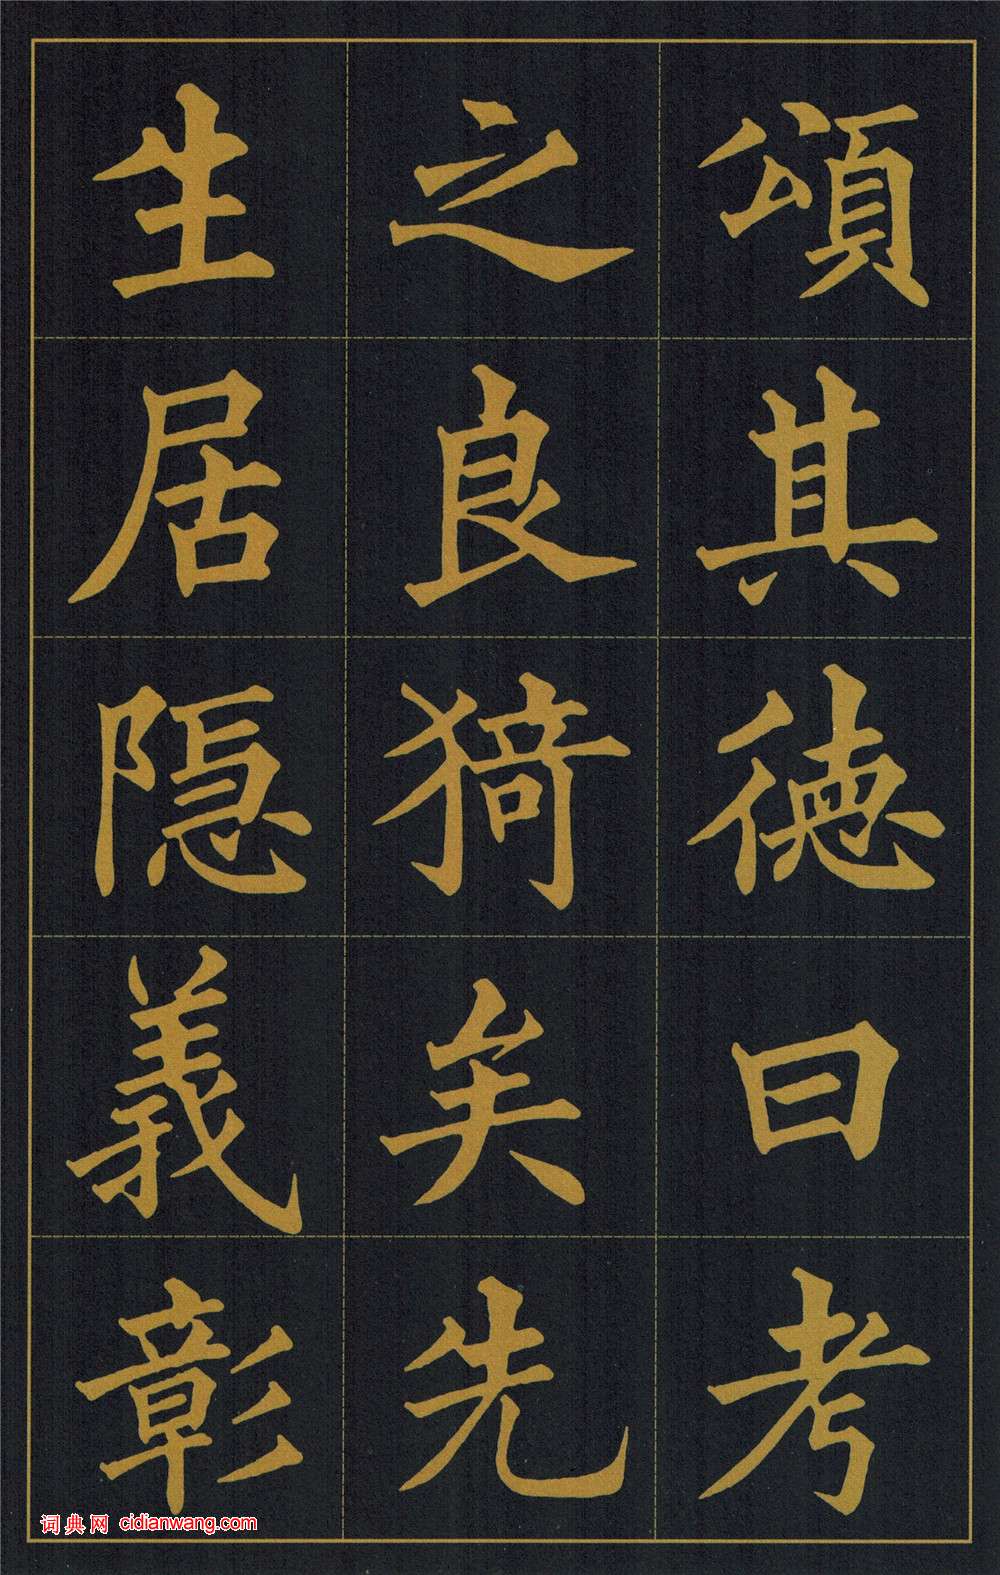 頌其徳曰考
之良猗矣先
生居隱義彰
词典网 cidianwang.com